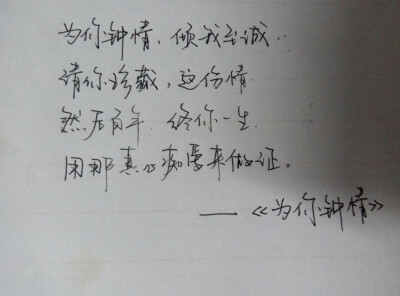 为你钟情，倾我至诚..
请你珍藏，这份情
然后百年 终你一生
用那真心痴爱来做证。
——《为你钟情》